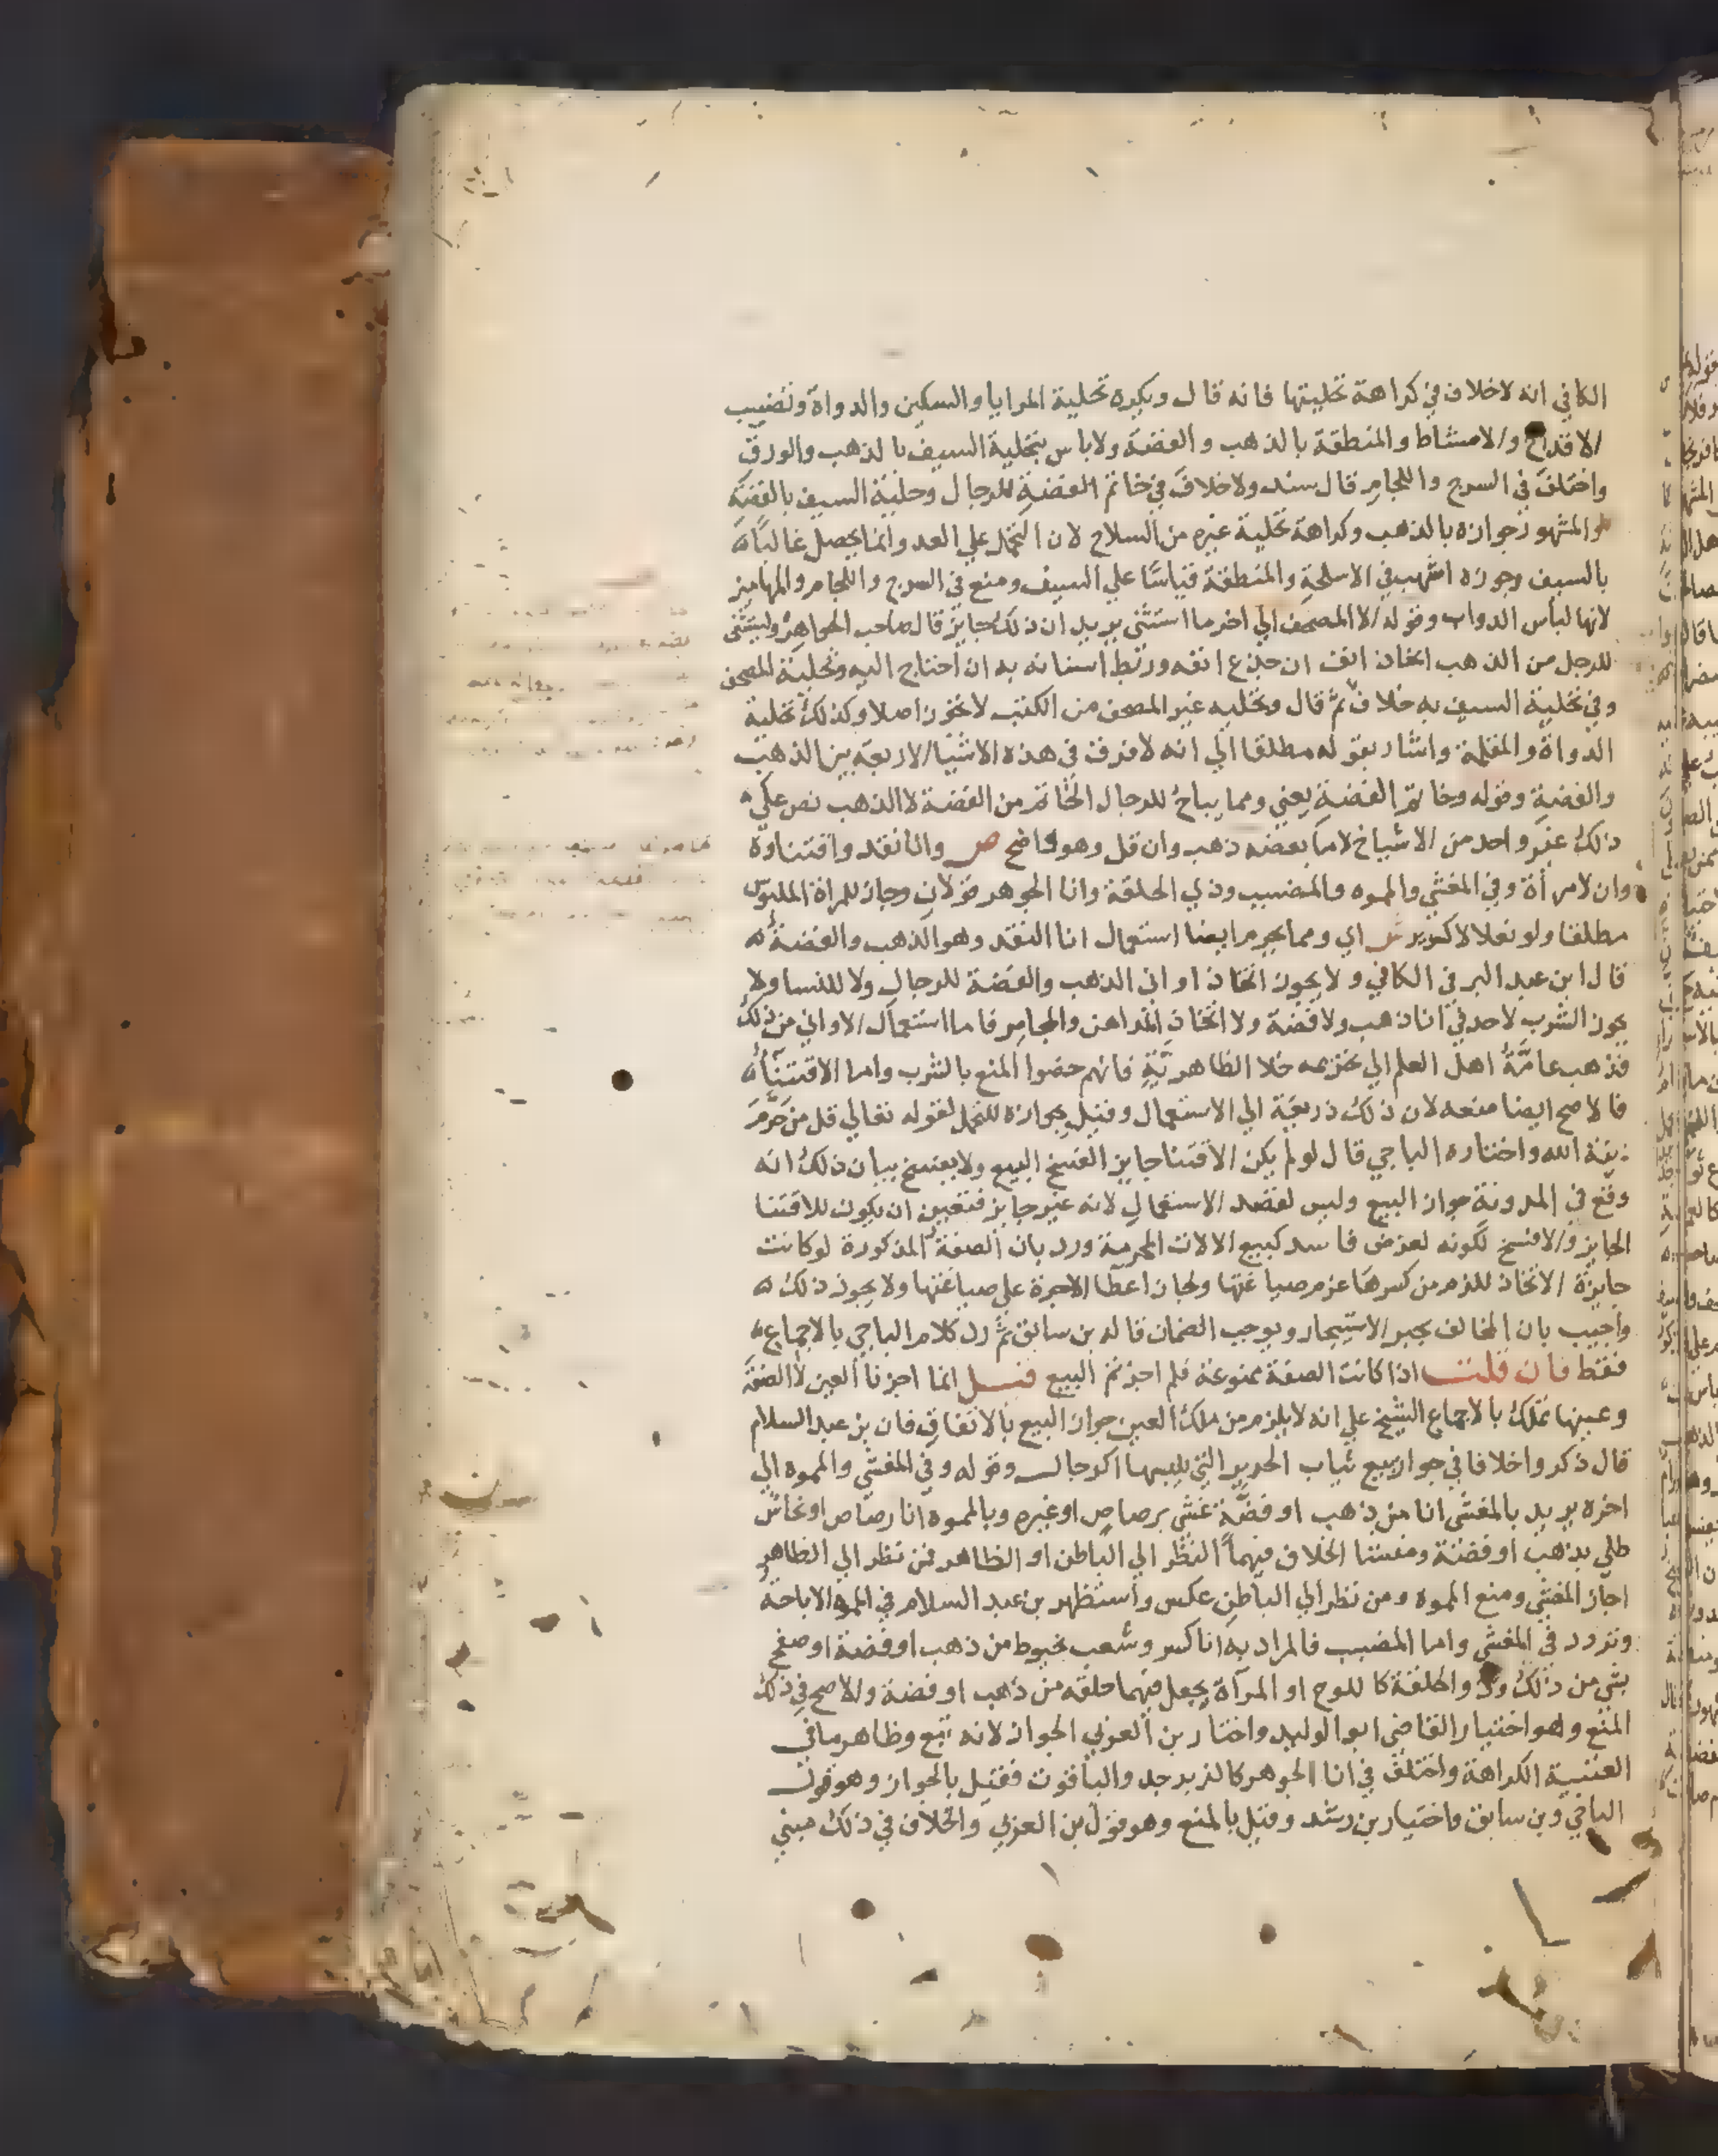 الكافي انه لاخلاف في كراهة تحليتها فانه قال ويكره تحلية المرايا والسكين والدواة وتضبيب
الاقداح والامشاط والمنطقة بالذهب والفضة ولاباس بتحلية السيف بالذهب والورق
واختلف في السرج واللجام قال سند ولاخلاف في خاتم الفضة للرجال وحلية السيف بالفضة
والمشهور جوازه بالذهب وكراهة تحلية غيره من السلاح لان التجمل علي العدو انما يحصل غالبا
بالسيف وجوزه اشهب في الاسلحة والمنطقة قياسا علي السيف ومنع في السرج واللجام والمهاميز
لانها لباس الدواب وقوله الا المصحف الي اخر ما استثني يريد ان ذلك جايز قال صاحب الجواهر ويستثني
للرجل من الذهب اتخاذ انف ان جذع انفه وربط اسنانه به ان احتاج اليه وتحلية المصحف
وفي تحلية السيف به خلاف ثم قال وتحليه غير المصحف من الكتب لا تجوز اصلا وكذلك تحلية
الدواة والمقلمة واشار بقوله مطلقا الي انه لا فرق في هذه الاشيا الاربعة بين الذهب
والفضة وقوله وخاتم الفضة يعني ومما يباح للرجال الخاتم من الفضة لا الذهب نص علي
ذلك غير واحد من الاشياخ لا ما بعضه ذهب وان قل وهو واضح ص وانا نقد واقتناوه
وان لامرأة وفي المغشي والمموه والمضبب وذي الحلقة وانا الجوهر قولان وجاز للمراة الملبوس
مطلقا ولو نعلا لا كسرير ش اي ومما يحرم ايضا استعمال انا النقد وهو الذهب والفضة
قال ابن عبد البر في الكافي ولا يجوز اتخاذ اواني الذهب والفضة للرجال ولا للنسا ولا
يجوز الشرب لاحد في انا ذهب ولا فضة ولا اتخاذ المداهن والمجامر فاما استعمال الاواني من ذلك
فذهب عامة اهل العلم الي تحريمه خلا الظاهرية فانهم خصوا المنع بالشرب واما الاقتنا
فالاصح ايضا منعه لان ذلك ذريعة الي الاستعمال وقيل بجوازه للتجمل لقوله تعالي قل من حرم
زينة الله واختاره الباجي قال لو لم يكن الاقتنا جايز الفسخ البيع ولا يفسخ بيان ذلك انه
وقع في المدونة جواز البيع وليس لقصد الاستعمال لانه غير جايز فتعين ان يكون للاقتنا
الجايز والا فسخ لكونه لعرض فاسد كبيع الالات المحرمة ورد بان الصنعة المذكورة لو كانت
جايزة الاتخاذ للزم من كسرها غرم صياغتها ولجاز اعطا الاجرة علي صياغتها ولا يجوز ذلك
واجيب بان المخالف يجير الاستيجار ويوجب الضمان قاله بن سابق ثم رد كلام الباجي بالاجماع
فقط فان قلت اذا كانت الصنعة ممنوعة فلم اجزتم البيع قيل انما اجزنا العين لا الصنعة
وعينها تملك بالاجماع الشيخ علي انه لا يلزم من ملك العين جواز البيع بالاتفاق فان بن عبد السلام
قال ذكروا خلافا في جواز بيع ثياب الحرير التي يلبسها الرجال وقوله وفي المغشي والمموه الي
اخره يريد بالمغشي انا من ذهب او فضة غشي برصاص او غيره وبالمموه انا رصاص او نحاس
طلي بذهب او فضة ومنشا الخلاف فيهما النظر الي الباطن او الظاهر فمن نظر الي الظاهر
اجاز المغشي ومنع المموه ومن نظر الي الباطن عكس واستظهر بن عبد السلام في المموه الاباحة
وتردد في المغشي واما المضبب فالمراد به انا كسر وشعب بخيوط من ذهب او فضة او صفح
بشي من ذلك والحلقة كاللوح او المرآة يجعل فيهما حلقه من ذهب او فضة والاصح في ذلك
المنع وهو اختيار القاضي ابو الوليد واختار بن العربي الجواز لانه تبع وظاهر ما في
العتبية الكراهة واختلف في انا الجوهر كالزبرجد والياقوت فقيل بالجواز وهو قول
الباجي وبن سابق واختيار بن رشد وقيل بالمنع وهو قول بن العربي والخلاف في ذلك مبني